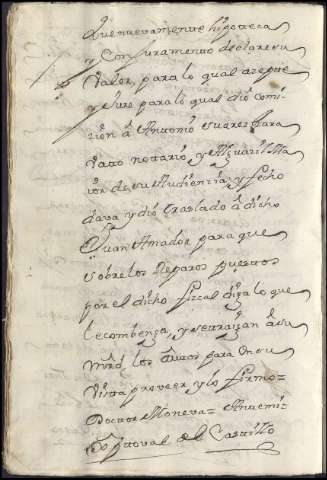 que nuevamente hipoteca
y con juramento declare su
valor, para lo qual azepte
y jure para lo qual dio comi-
sion á Antonio Suares
notario y Alguazil Ma
yor de su Audiencia, y fecho
dava y dio traslado á dicho
Juan Amador para que
sobre los Reparos puestos
por el dicho fiscal diga lo que
le combenga, y se traigan á su
mrd, los autos para en su
vista proveer y lo firmo=
Doctor Moneva= Antemi=
Xptoval del Castillo